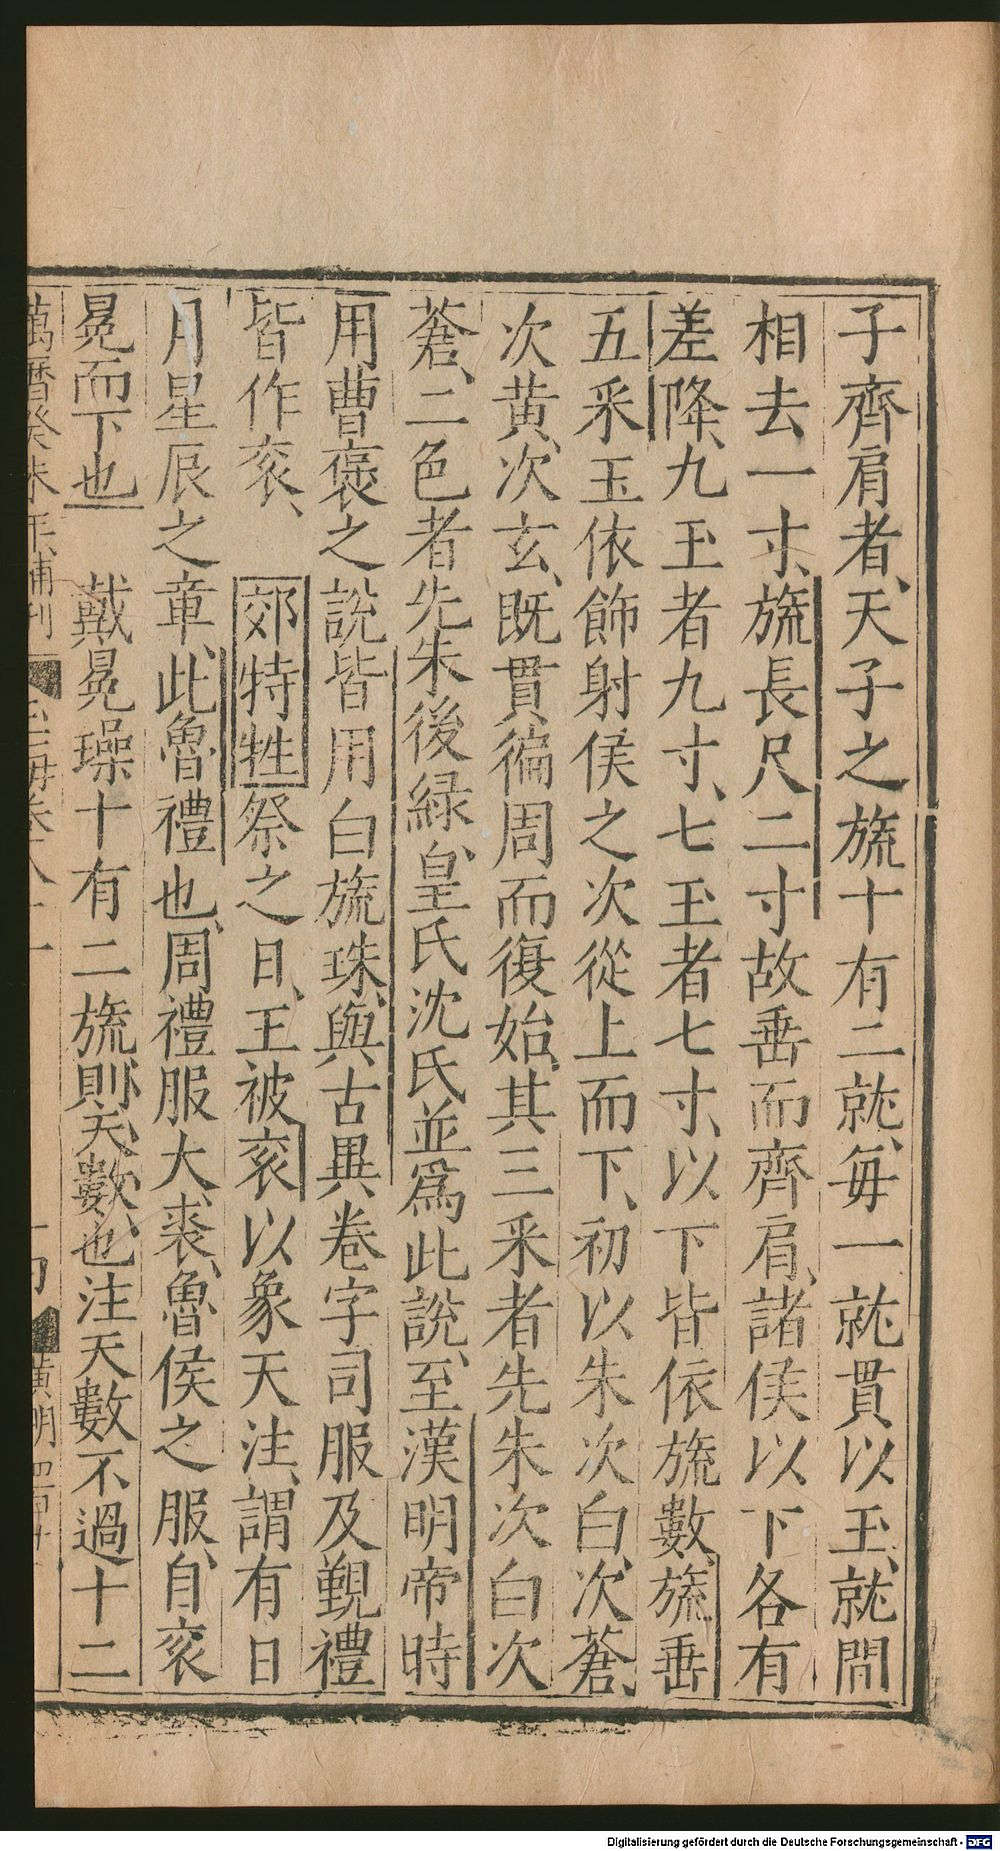 子齊肩者、天子之旒十有二就、每一就貫以玉、就間
相去一寸、旒長尺二寸故垂而齊肩、諸侯以下各有
差降、九玉者九寸、七玉者七寸、以下皆依旒數、旒垂
五采玉依飾射侯之次從上而下、初以朱次白、次蒼、
次黄、次玄、旣貫徧周而復始、其三采者先朱次白次
蒼、二色者先朱後綠、皇氏沈氏並爲此說、至漢明帝時
用曹褒之說皆用白旒珠、與古異卷字司服及覲禮
皆作衮、郊特牲祭之日、王被衮以象天注、謂有日
月星辰之章、此魯禮也、周禮服大裘、魯侯之服、自衮
冕而下也 戴冕璪十有二旒、則天數也注天數不過十二
萬曆癸未年補刊 玉海卷八十一
Digitalisierung gefördert durch die Deutsche Forschungsgemeinschaft - DFG